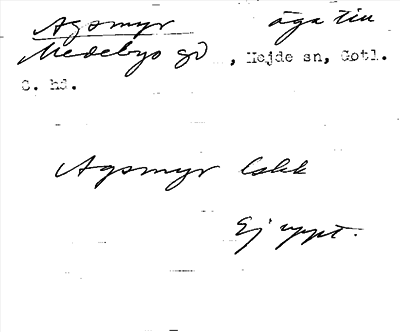 Agsmyr äga till
Medebys gd, Hejde sn, Gotl.
S. hd.
Agsmyr Lokk
Ej uppt.